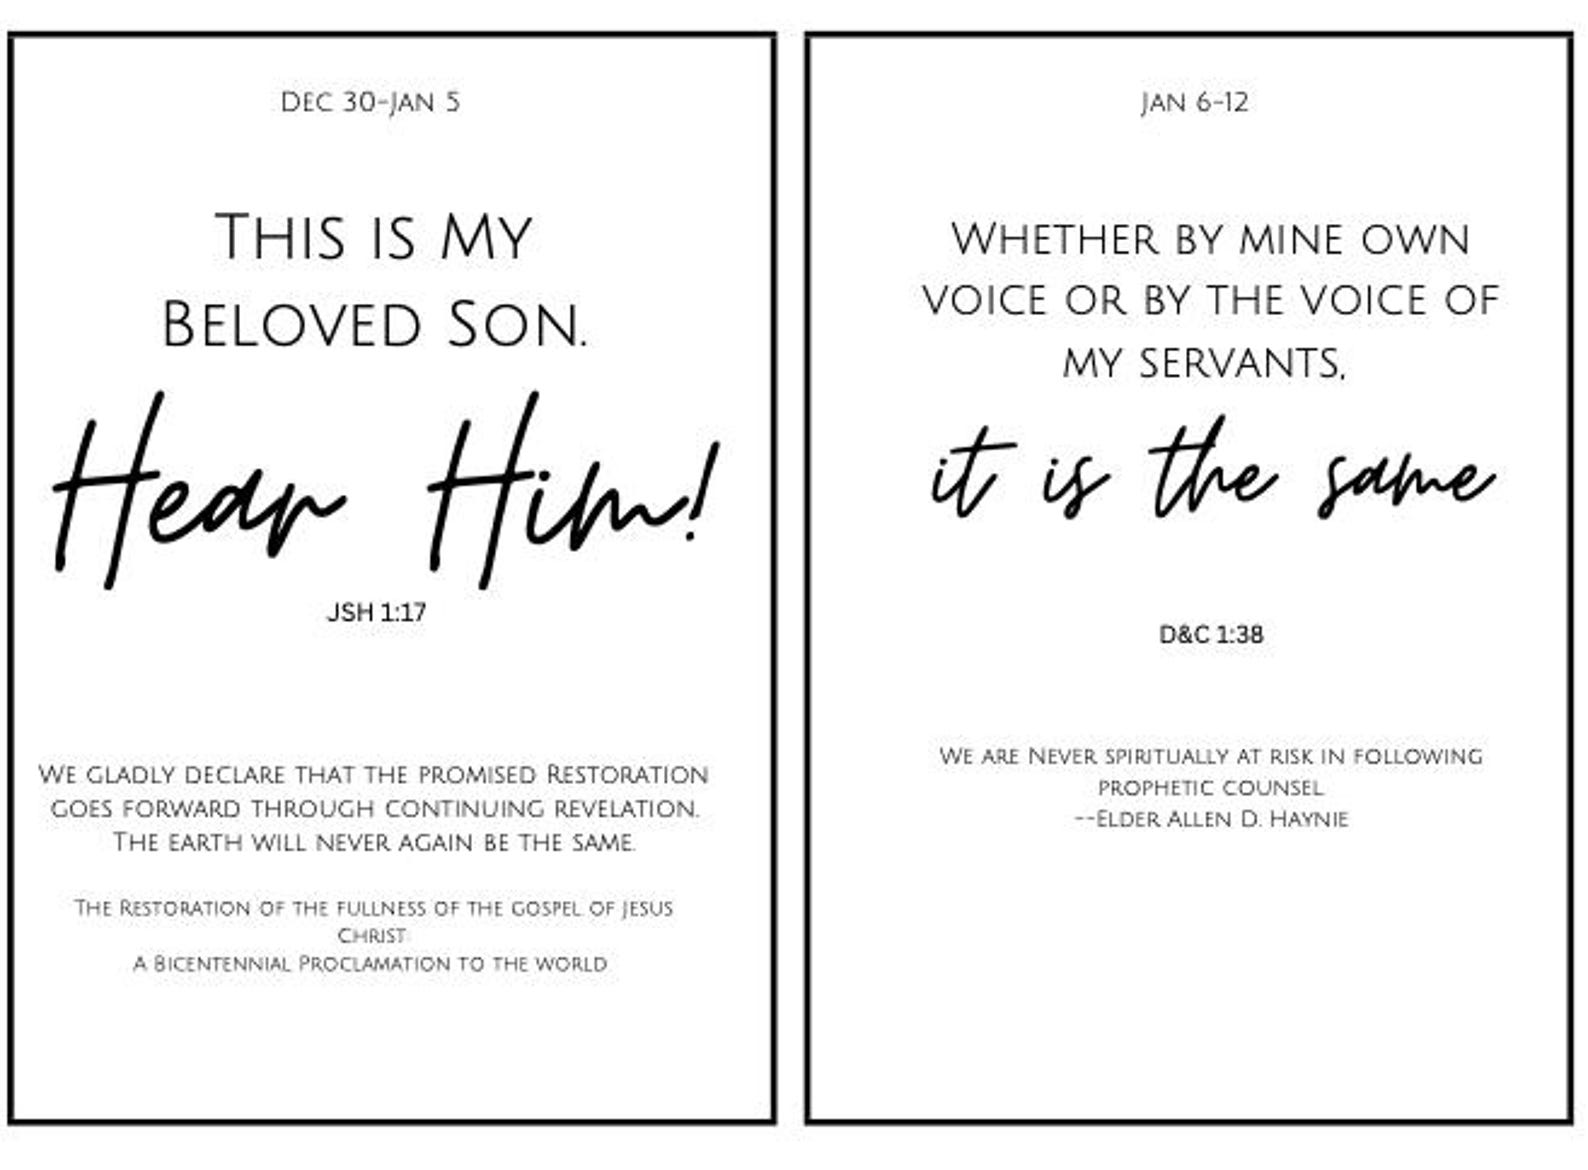 Dec 30-Jan 5
This is My
Beloved Son.
Hear Him!
JSH 1:17
We gladly declare that the promised Restoration
goes forward through continuing revelation.
The earth will never again be the same.
The Restoration of the fullness of the gospel of Jesus
Christ:
A Bicentennial Proclamation to the world
Jan 6-12
Whether by mine own
voice or by the voice of
my servants,
it is the same
D&C 1:38
We are Never spiritually at risk in following
prophetic counsel.
--Elder Allen D. Haynie